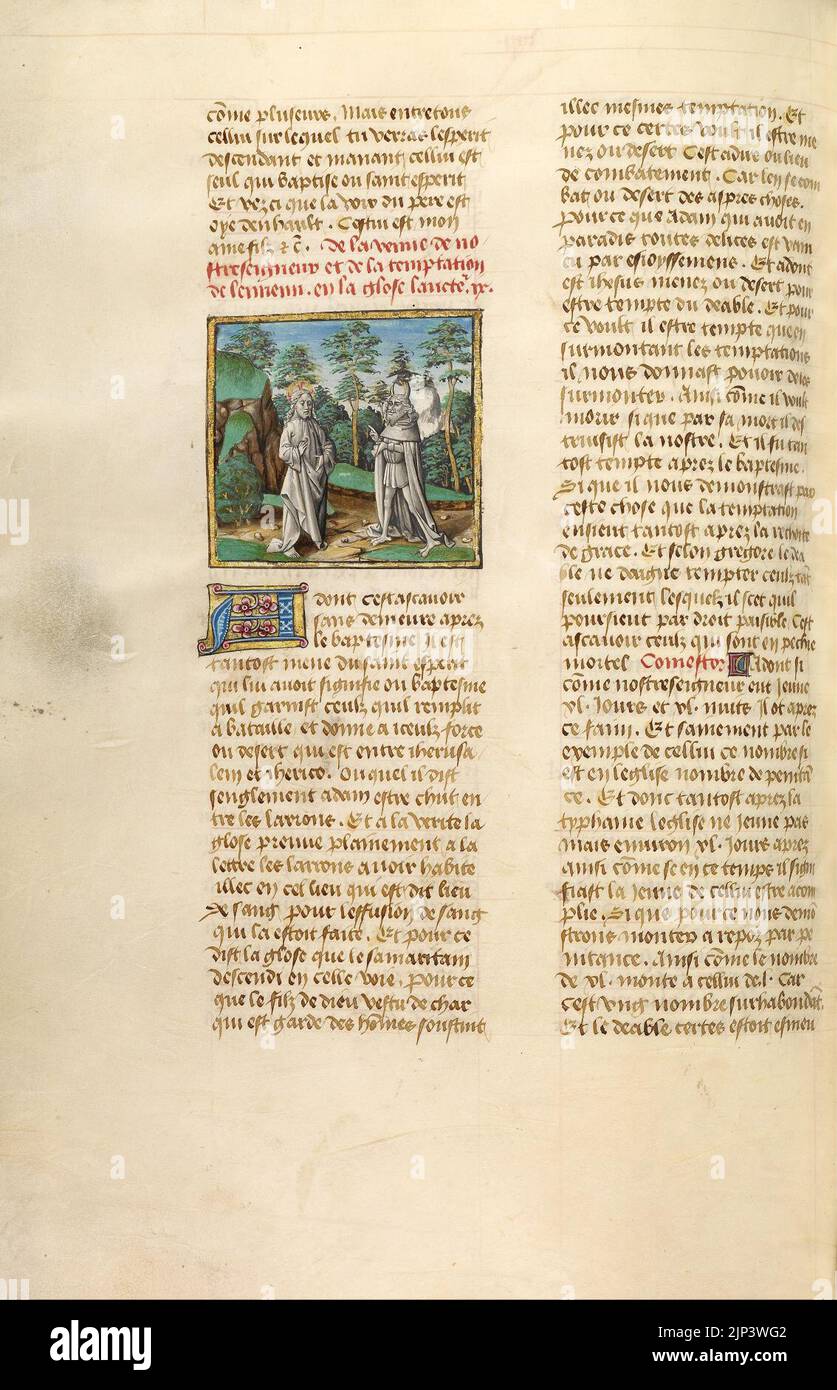 cõme pluseurs. Mais entre tous
cellui sur lequel tu verras lesperit
descendant et manant cellui est
seul qui baptise ou saint esperit
Et vezci que la voix du pere est
oye den hault. Cestui est mon
ame filz &c̃. De la venue de no
stre seigneur et de la temptation
de lennemi. en la glose
dont cest ascavoir
sans demeure aprez
le baptesme il est
tantost mene du saint esperit
qui lui avoit signifie ou baptesme
quil garnist ceulz quil remplit
a bataille et donne a iceulz force
ou desert qui est entre iherusa
lem et iherico. Ou quel il dist
senglement adam estre chut en
tre les larrons. Et a la verite la
glose preuve plainement a la
lettre les larrons avoir habite
illec en cel lieu qui est dit lieu
de sang pour leffusion de sang
qui la estoit faite. Et pour ce
dist la glose que le samaritain
descendi en celle voie. pour ce
que le filz de dieu vestu de char
qui est garde des hõmes soustint
illec mesmes temptation. Et
pour ce certes voult il estre me
nez ou desert Cest adire ou lieu
de combatement. Car len se com
bat ou desert des aspres choses.
Pour ce que Adam qui avoit en
paradis toutes delices est vain
cu par esioyssemens. Et adont
est ihesus menez ou desert pour
estre tempte du deable. Et pour
ce voult il estre tempte que en
surmontant les temptations
il nous donnast pouoir de les
surmonter. Ainsi cõme il voult
morir si que par sa mort il des
truisist la nostre. Et il fu tan
tost tempte aprez le baptesme.
Si que il nous demonstrast par
ceste chose que la temptation
ensient tantost aprez la
de grace. Et selon gregore le dea
ble ne daigne tempter ceulz tant
seulement lesquelz il scet quil
poursient par droit paisible. Cest
ascavoir ceulz qui sont en pechie
mortel Comestor Adont si
cõme nostre seigneur eut jeune
xl. jours et xl. nuits il ot aprez
ce faim. Et sainement par le
exemple de cellui ce nombre si
est en leglise nombre de peniten
ce. Et donc tantost aprez la
typhanie leglise ne jeune pas
mais environ xl. jours aprez
Ainsi cõme se en ce temps il signi
fiast la jeune de cellui estre acom
plie. Si que pour ce nous demõ
strons monter a repoz par pe
nitance. Ainsi cõme le nombre
de xl. monte a cellui de .l. Car
cest ung nombre surhabondãt.
Et le deable certes estoit esmeu
alamy
Image ID: 2JP3WG2
www.alamy.com